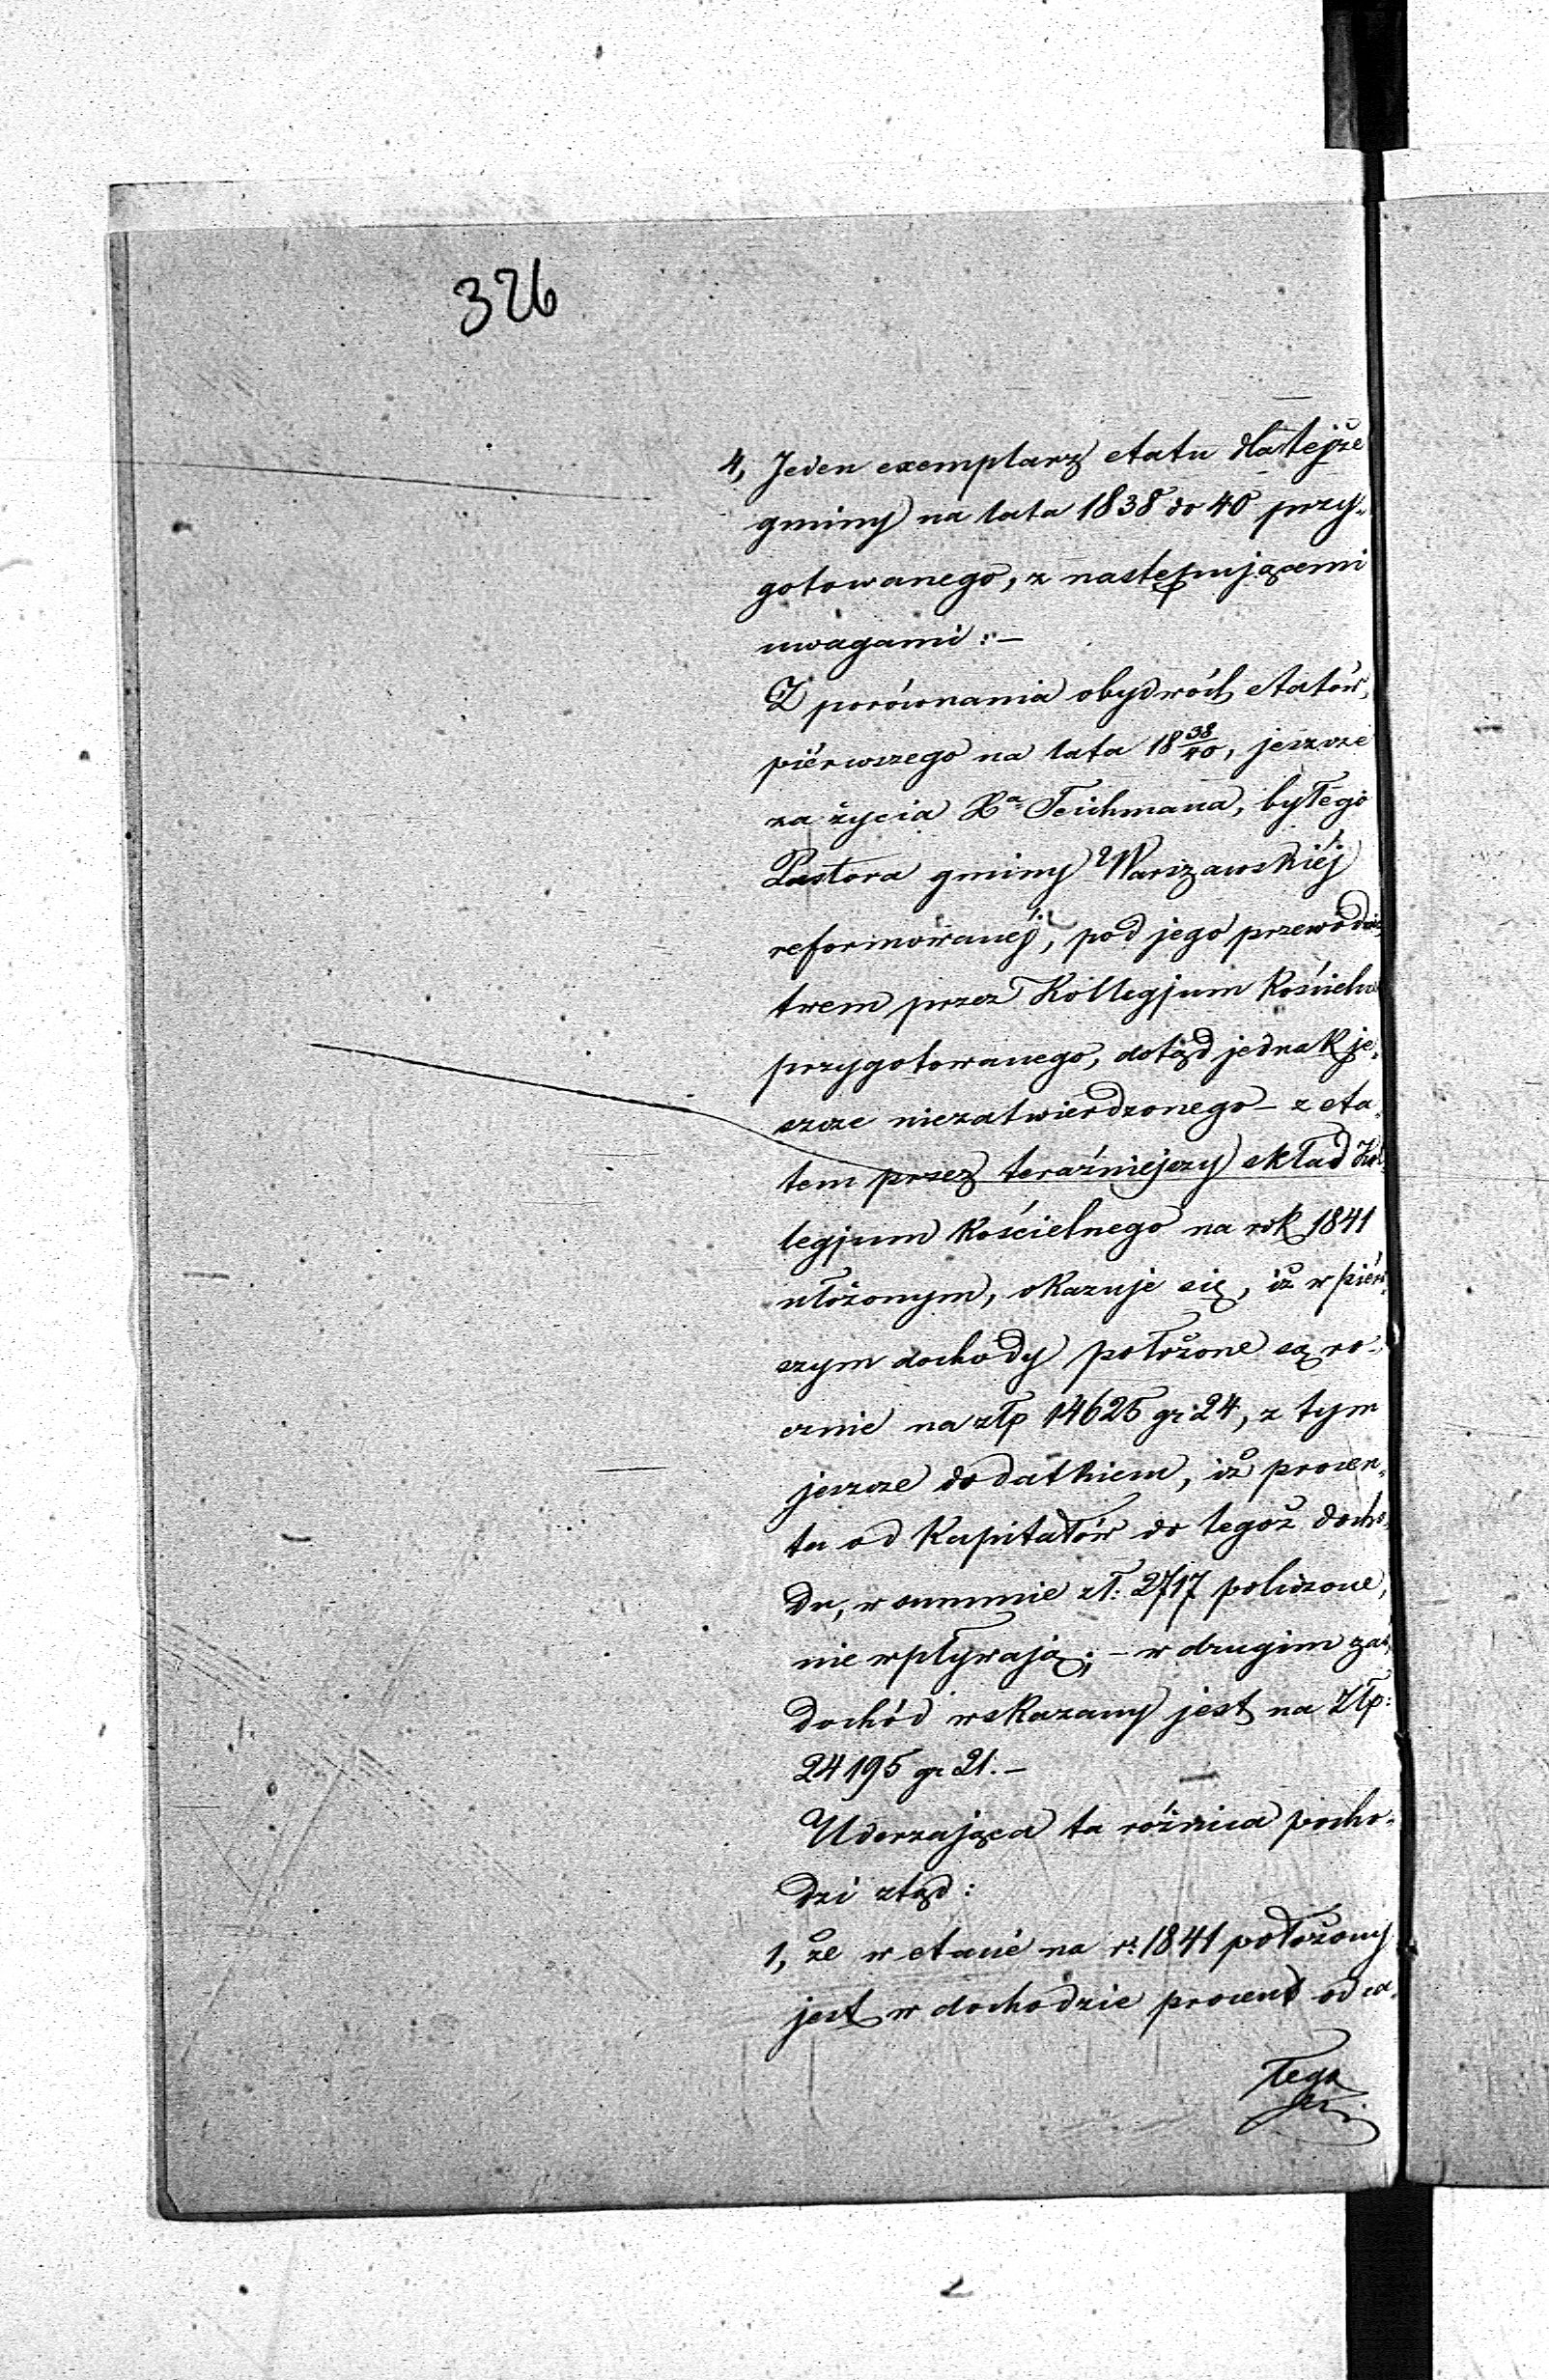 326
4, Jeden exemplarz etatu dla tejże
gminy na lata 1838 do 40 przy„
gotowanego, z następującemi
uwagami: –
Z porównania obydwóch etatów,
piérwszego na lata 18 38/40, jeszcze
za życia Xa Teichmana, byłego
Pastora gminy Warszawskiéj
reformowanéj, pod jego przewódnic
twem przez Kollegjum Kościelne
przygotowanego, dotąd jednak je„
szcze niezatwierdzonego – z eta„
tem przez teraźniejszy skład Kol„
legjum Kościelnego na rok 1841
ułożonym, okazuje się, iż w piérw„
szym dochody położone są ro„
cznie na złp 14625 gr 24, z tym
jeszcze dodatkiem, iż procen„
ta od Kapitałów do tegoż docho„
du, w summie zł: 2717 policzone,
nie wpływają; – w drugim zaś,
dochód wskazany jest na Złp:
24195 gr 21. –
Uderzająca ta różnica pocho„
dzi ztąd:
1, że w etacie na r: 1841 położony
jest w dochodzie procent od ca„
łego